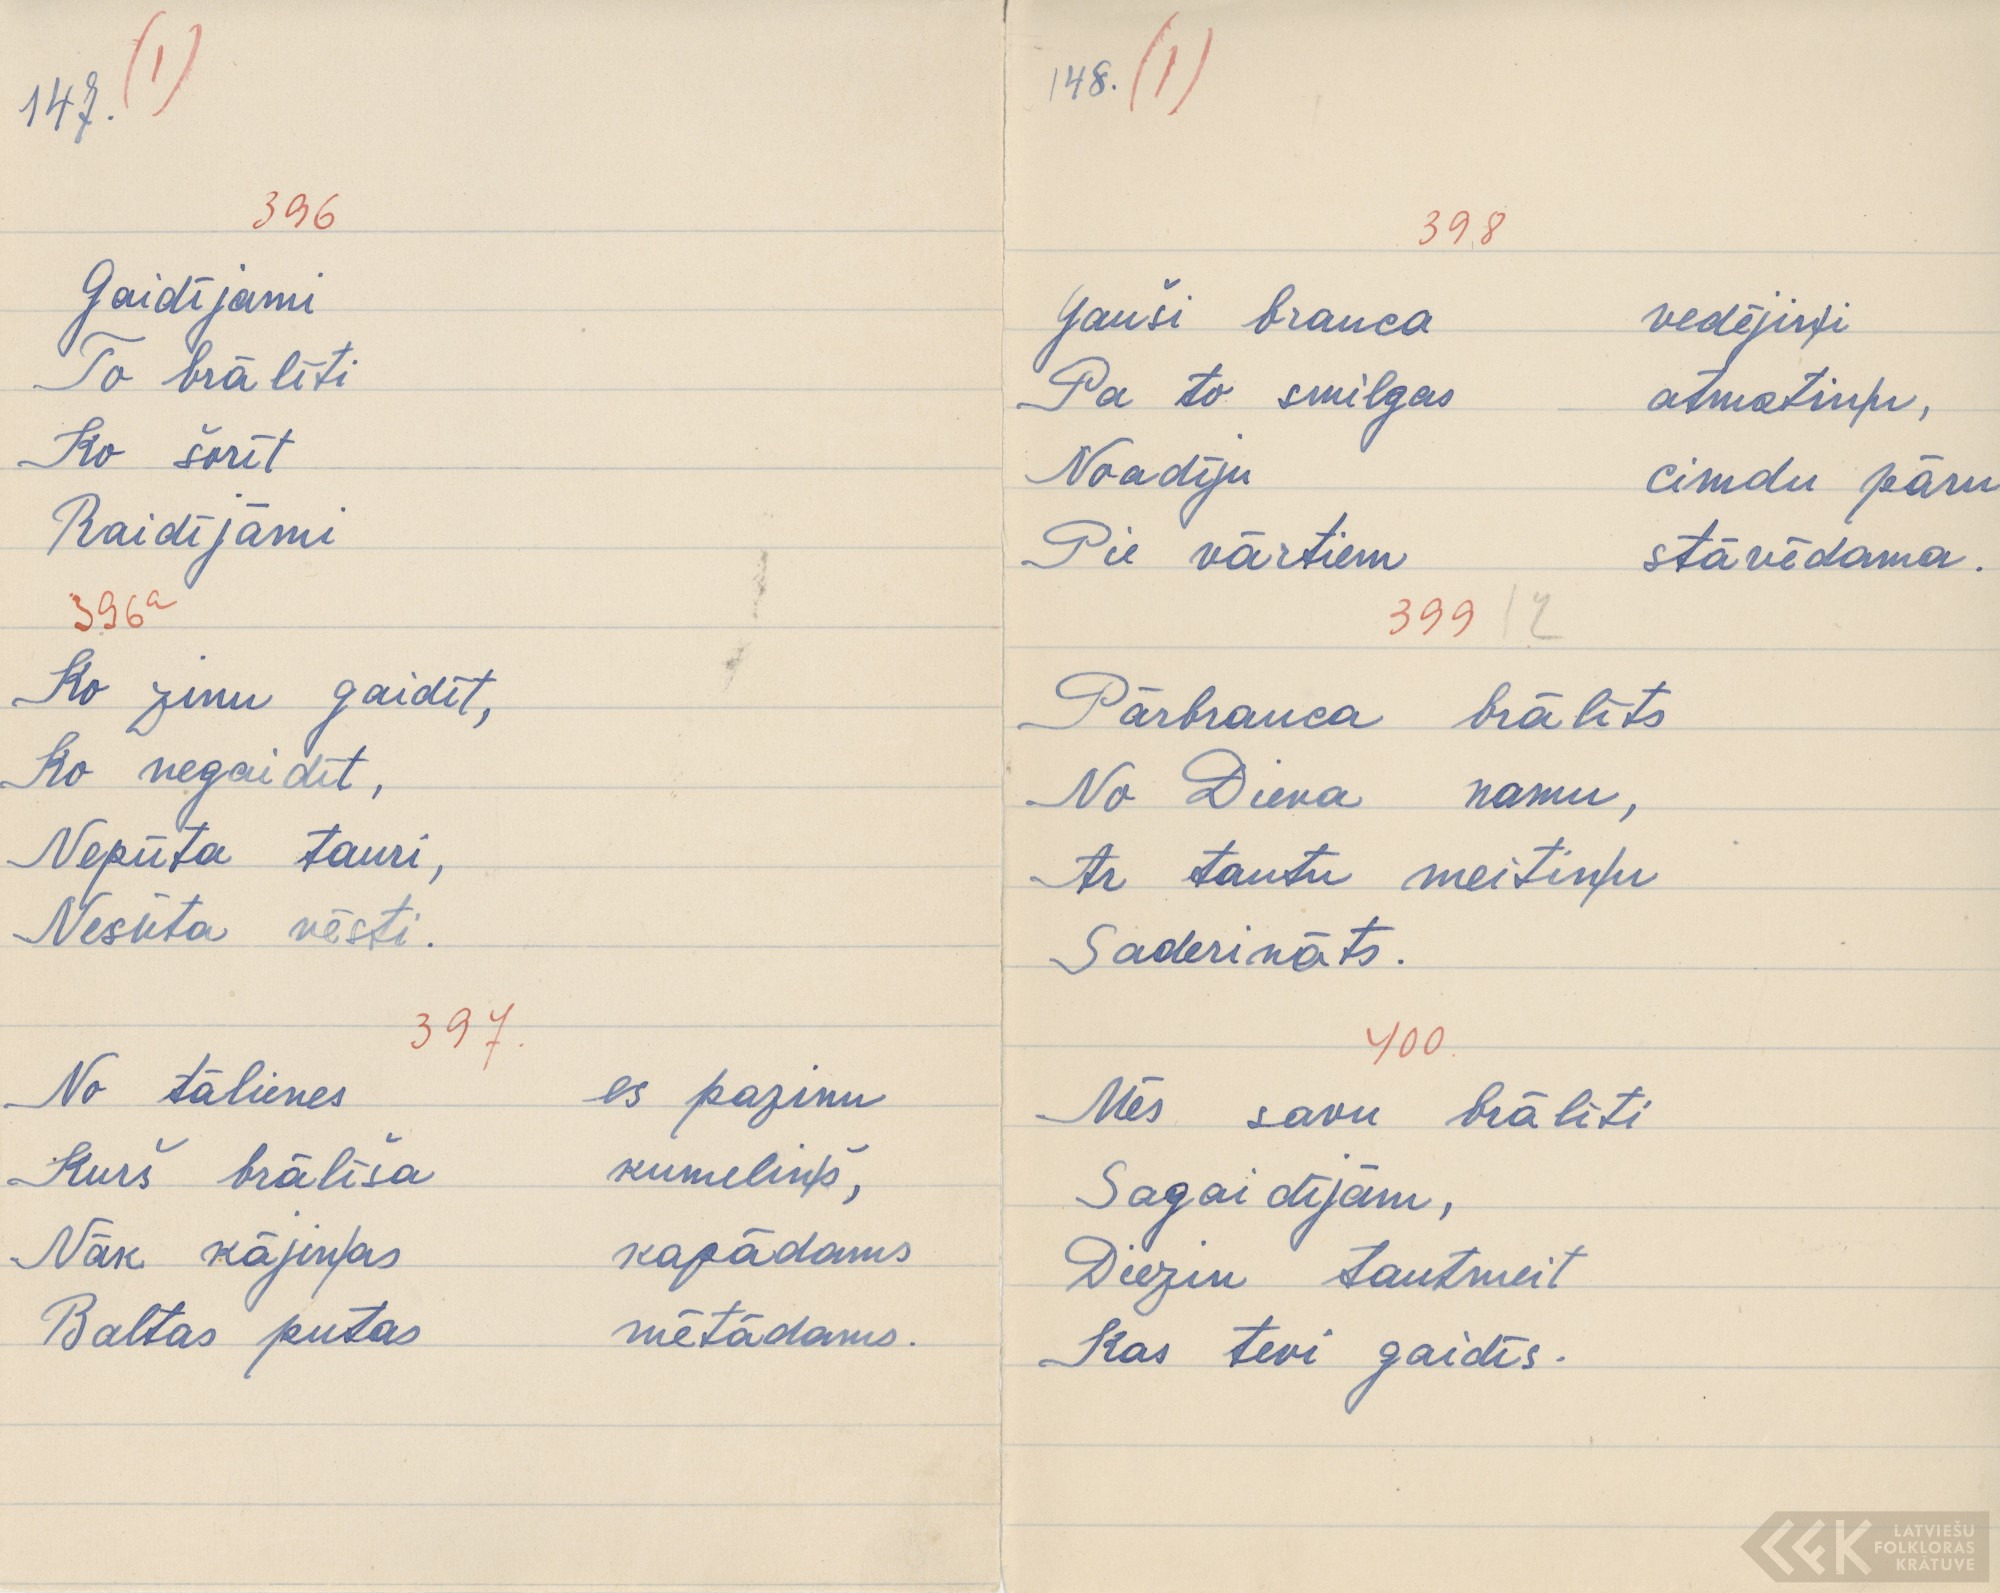 147. (1)
396
Gaidījami
To brālīti
Ko šorīt
Raidījāmi
396a
Ko zinu gaidīt,
Ko negaidīt,
Nepūta tauri,
Nesūta vēsti.
397.
No tālienes es pazinu
Kurš brālīša kumeliņš,
Nāk kājiņas kapādams
Baltas putas mētādams.
148. (1)
398
Gauši brauca vedējiņi
Pa to smilgas atmatiņu,
Noadīju cimdu pāru
Pie vārtiem stāvēdama.
399
Pārbrauca brālīts
No Dieva namu,
Ar tautu meitiņu
Saderināts.
400.
Mēs savu brālīti
Sagaidījām,
Diezin tautmeit
Kas tevi gaidīs.
LATVIEŠU
FOLKLORAS
KRĀTUVE